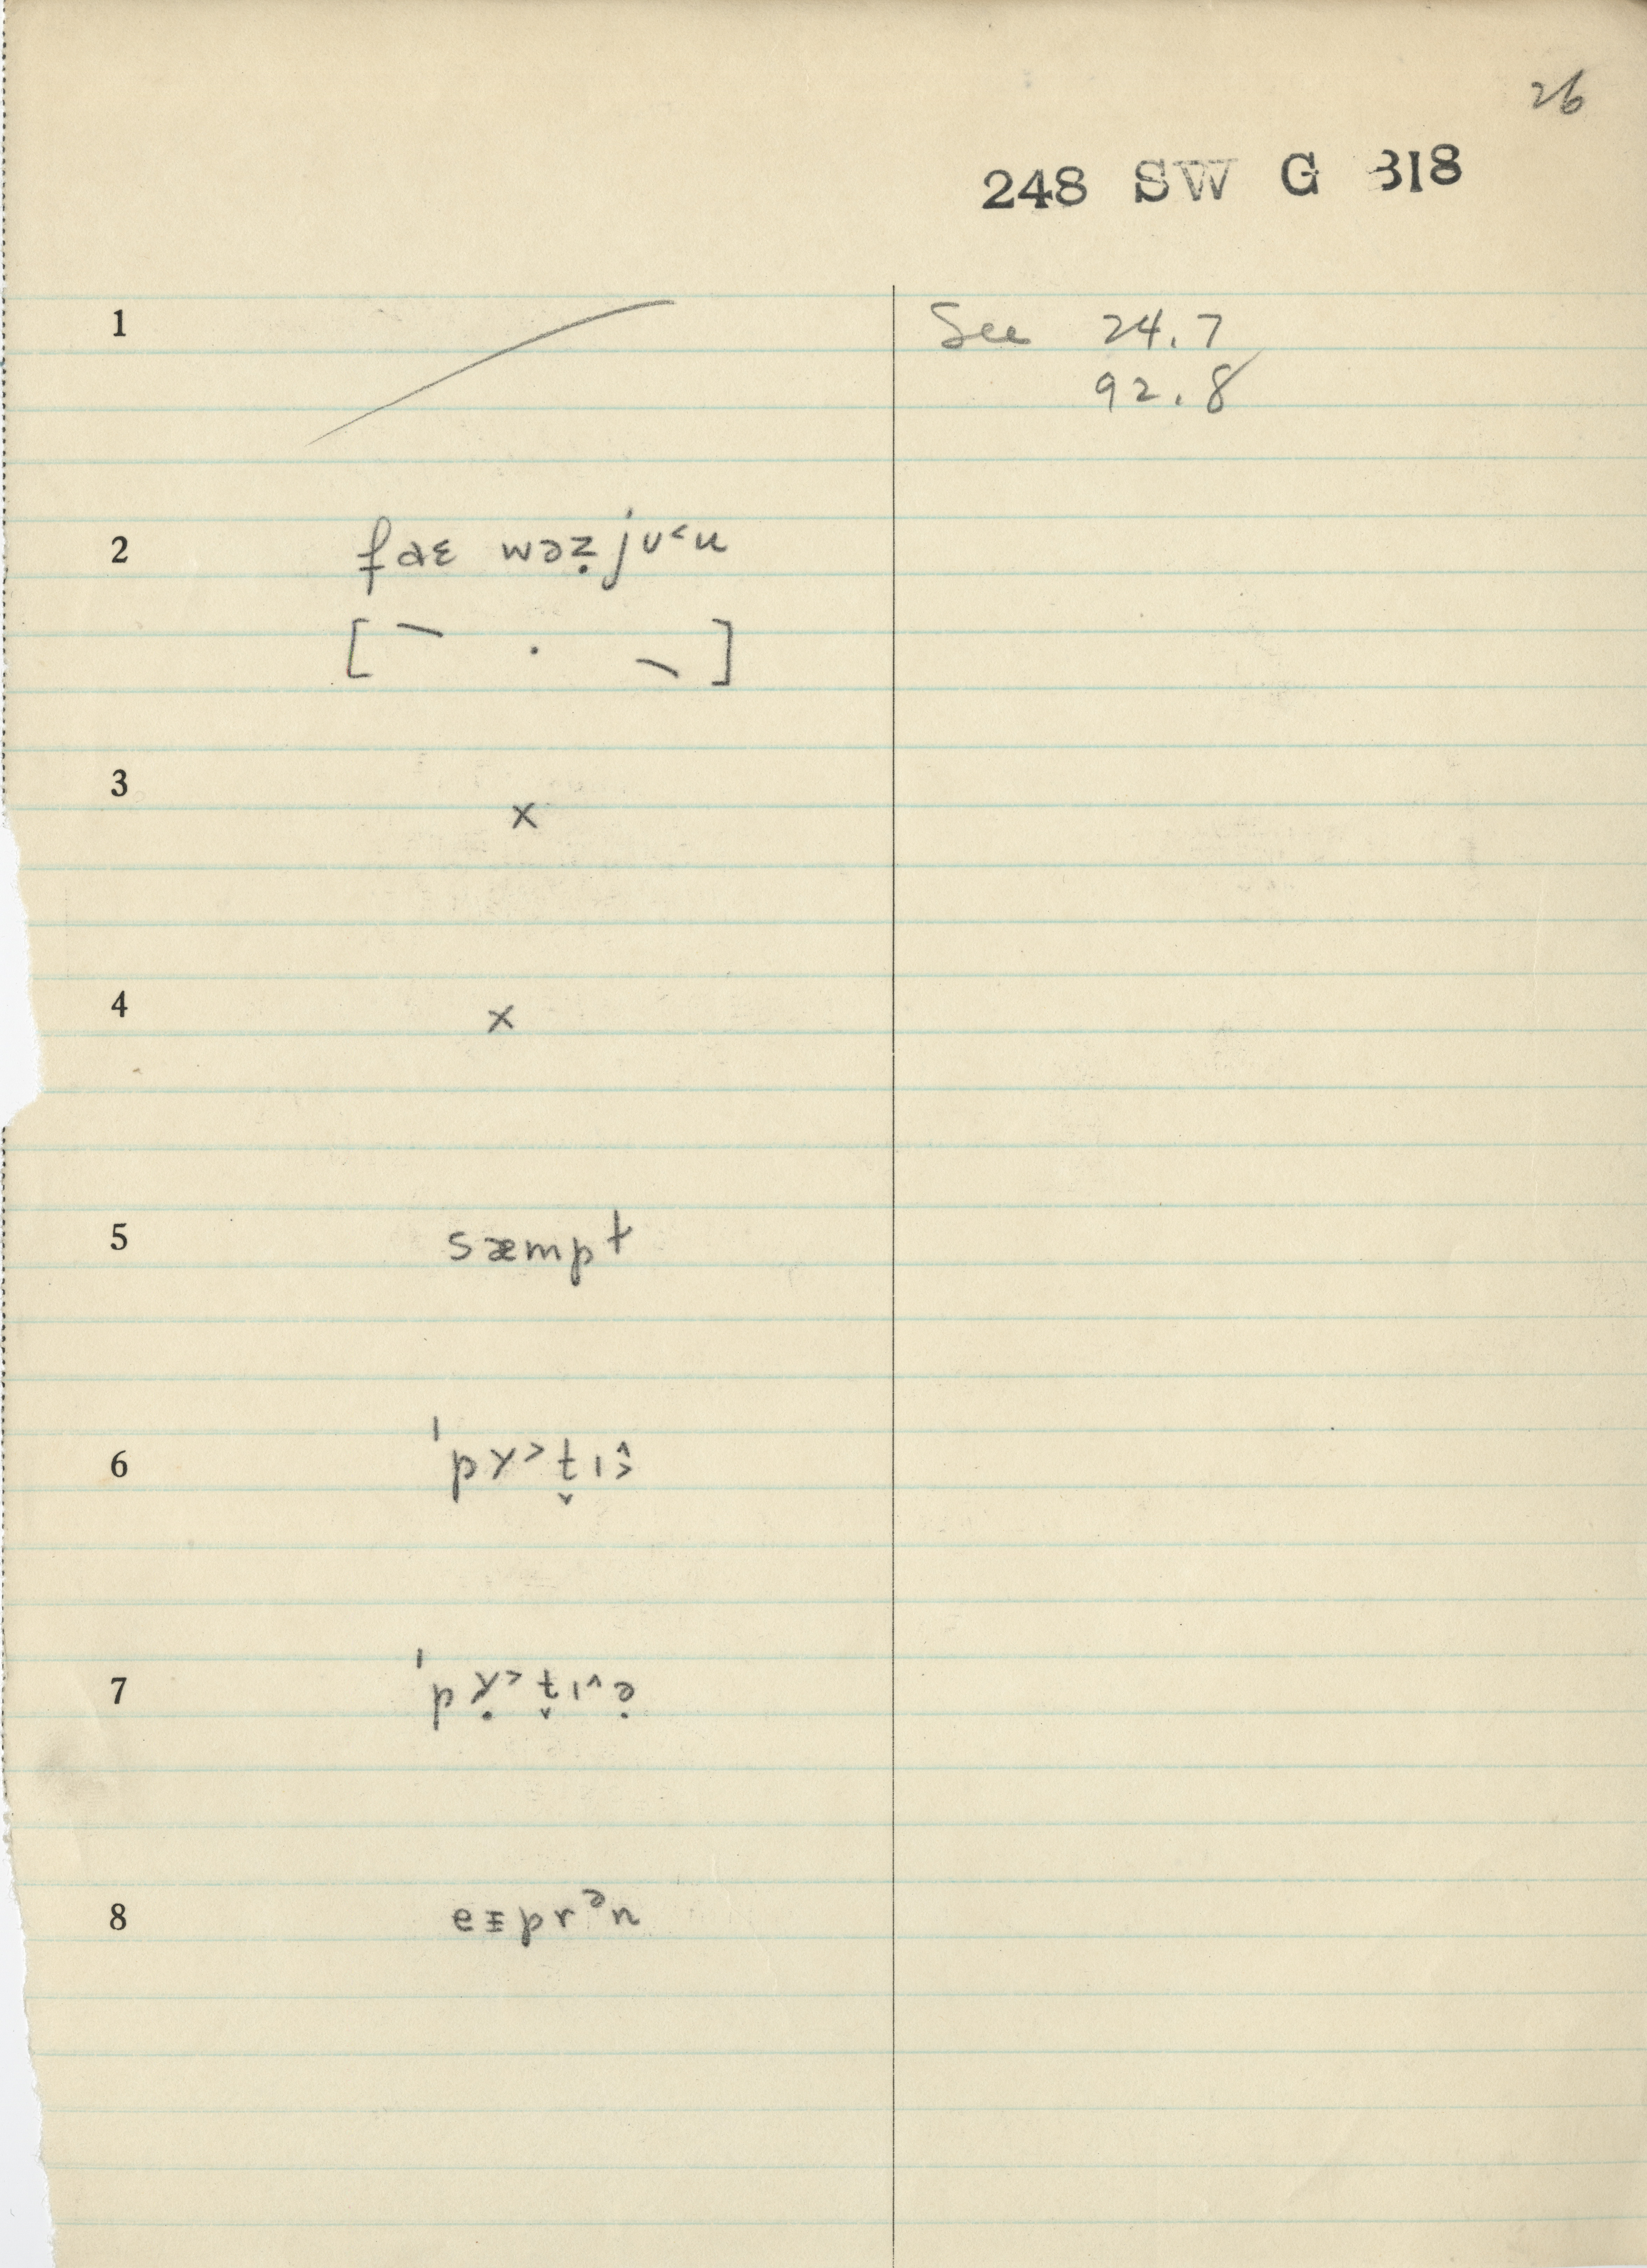 26
248 SW G 318
1 See 24.7
92.8
2 fɑɛ wəẓjʊ˂u
[ ]
3 x
4 x
5 sæmpt
6 ˈpɣ˃t̬ɪ
7 ˈpɣ̣˃t̬ɪ˄ə̣
8 eɪprᵊn